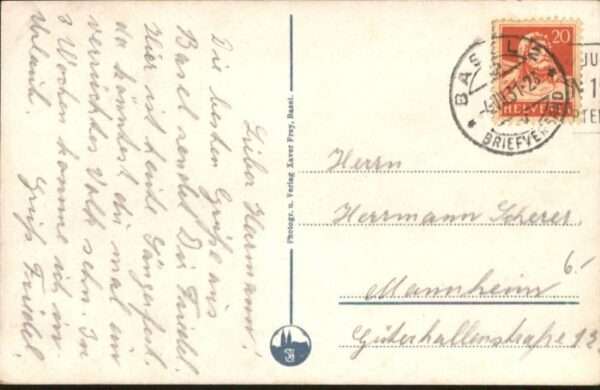 Lieber Hermann!
Die besten Grüße aus
Basel sendet Dir Friedel.
Hier ist heute Sängerfest.
da könntest du mal ein
verrücktes Volk sehn. In
3 Wochen komme ich in
Urlaub.
Gruß Friedel
Photogr. u. Verlag Xaver Frey, Basel.
20
HELVETIA
BASEL 2
BRIEFVERSAND
JU
Herrn
Herrmann Scherer
Mannheim
6.-
Güterhallenstraße 13